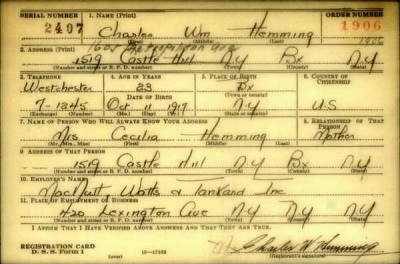 SERIAL NUMBER 1. NAME (Print) ORDER NUMBER
2407 Charles Wm Hemming 1906
(First) (Middle) (Last)
2. ADDRESS (Print)
1519 Castle Hill N.Y Bx N.Y
(Number and street or R. F. D. number) (Town) (County) (State)
3. TELEPHONE 4. AGE IN YEARS 5. PLACE OF BIRTH 6. COUNTRY OF CITIZENSHIP
Westchester 23 Bx
DATE OF BIRTH (Town or county)
7-1245 Oct 11 1917 N.Y U.S
(Exchange) (Number) (Mo.) (Day) (Yr.) (State or country)
7. NAME OF PERSON WHO WILL ALWAYS KNOW YOUR ADDRESS 8. RELATIONSHIP OF THAT PERSON
Mrs Cecilia Hemming Mother
(Mr., Mrs., Miss) (First) (Middle) (Last)
9. ADDRESS OF THAT PERSON
1519 Castle Hill N.Y Bx N.Y
(Number and street or R. F. D. number) (Town) (County) (State)
10. EMPLOYER'S NAME
Inc
11. PLACE OF EMPLOYMENT OR BUSINESS
420 Lexington Ave N.Y N.Y N.Y
(Number and street or R. F. D. number) (Town) (County) (State)
I AFFIRM THAT I HAVE VERIFIED ABOVE ANSWERS AND THAT THEY ARE TRUE.
REGISTRATION CARD
D. S. S. Form 1 (over) Charles W. Hemming
(Registrant's signature)